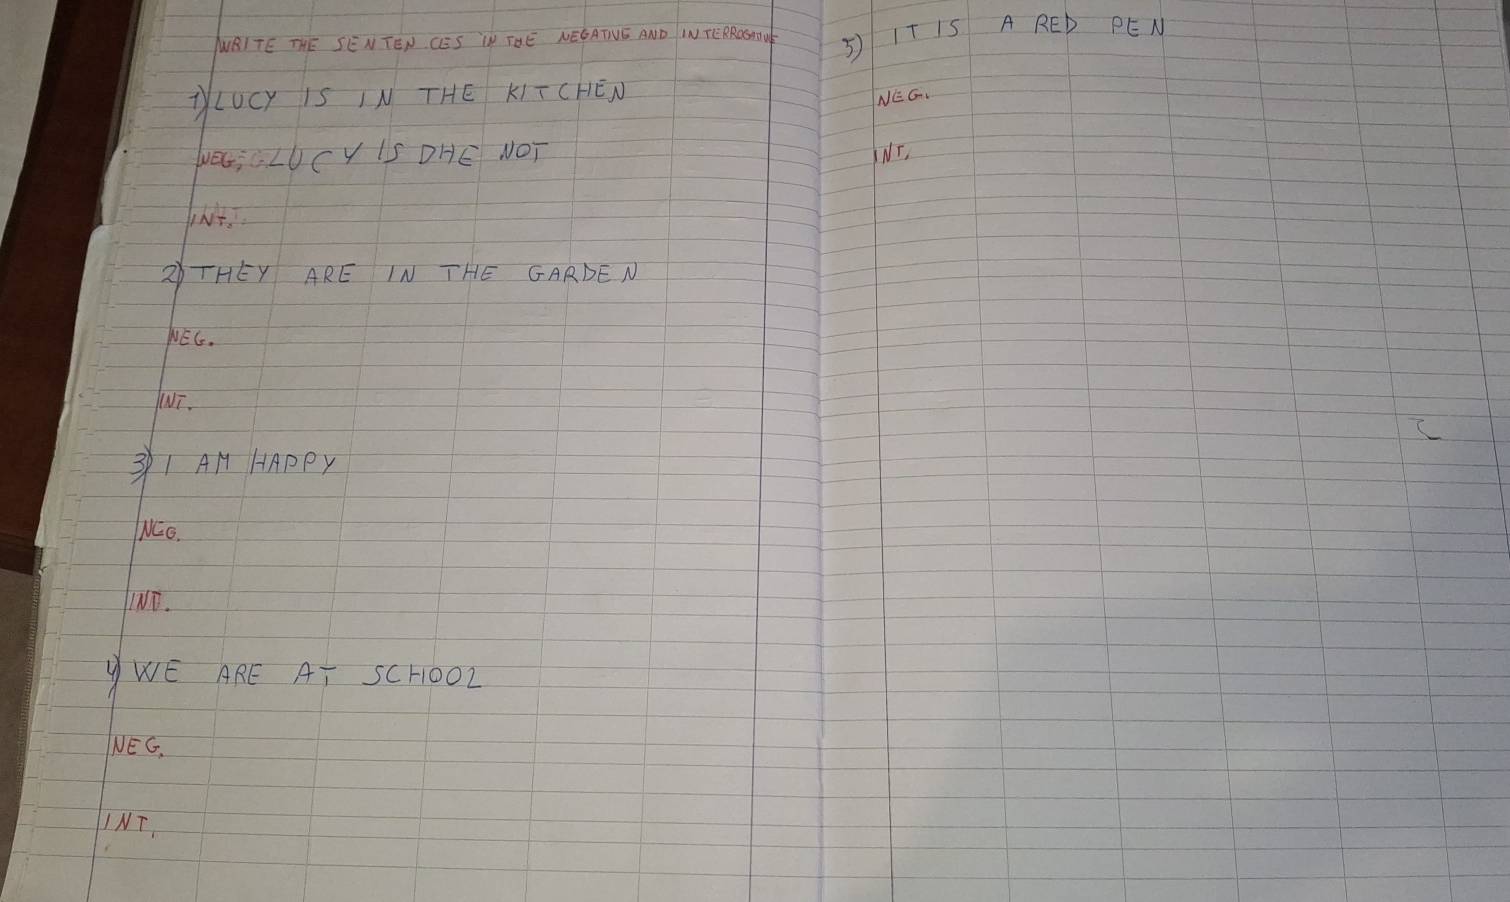 WRITE THE SENTENCES IN THE NEGATIVE AND INTERROGATIVE
1) LUCY IS IN THE KITCHEN
NEG. LUCY IS DHE NOT
INT.
2) THEY ARE IN THE GARDEN
NEG.
INT.
3) I AM HAPPY
NEG.
INT.
4) WE ARE AT SCHOOL
NEG.
INT.
5) IT IS A RED PEN
NEG.
INT.